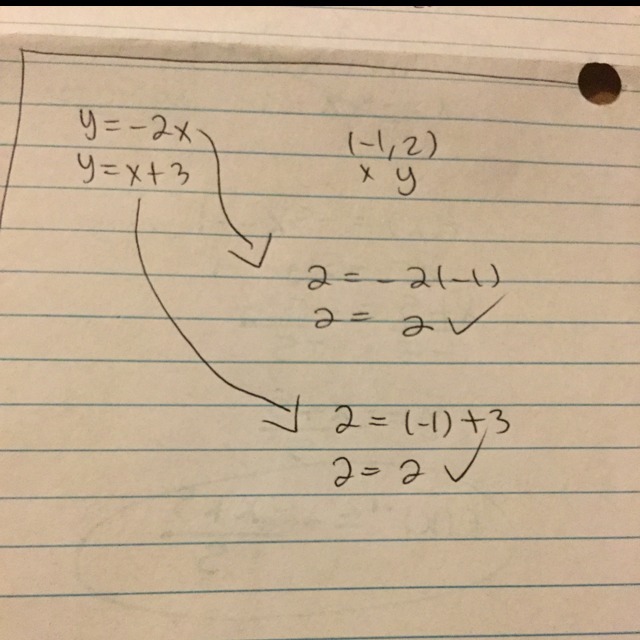 y=-2x
y=x+3
(-1,2)
x y
2 = -2(-1)
2 = 2 ✓
2 = (-1) +3
2 = 2 ✓